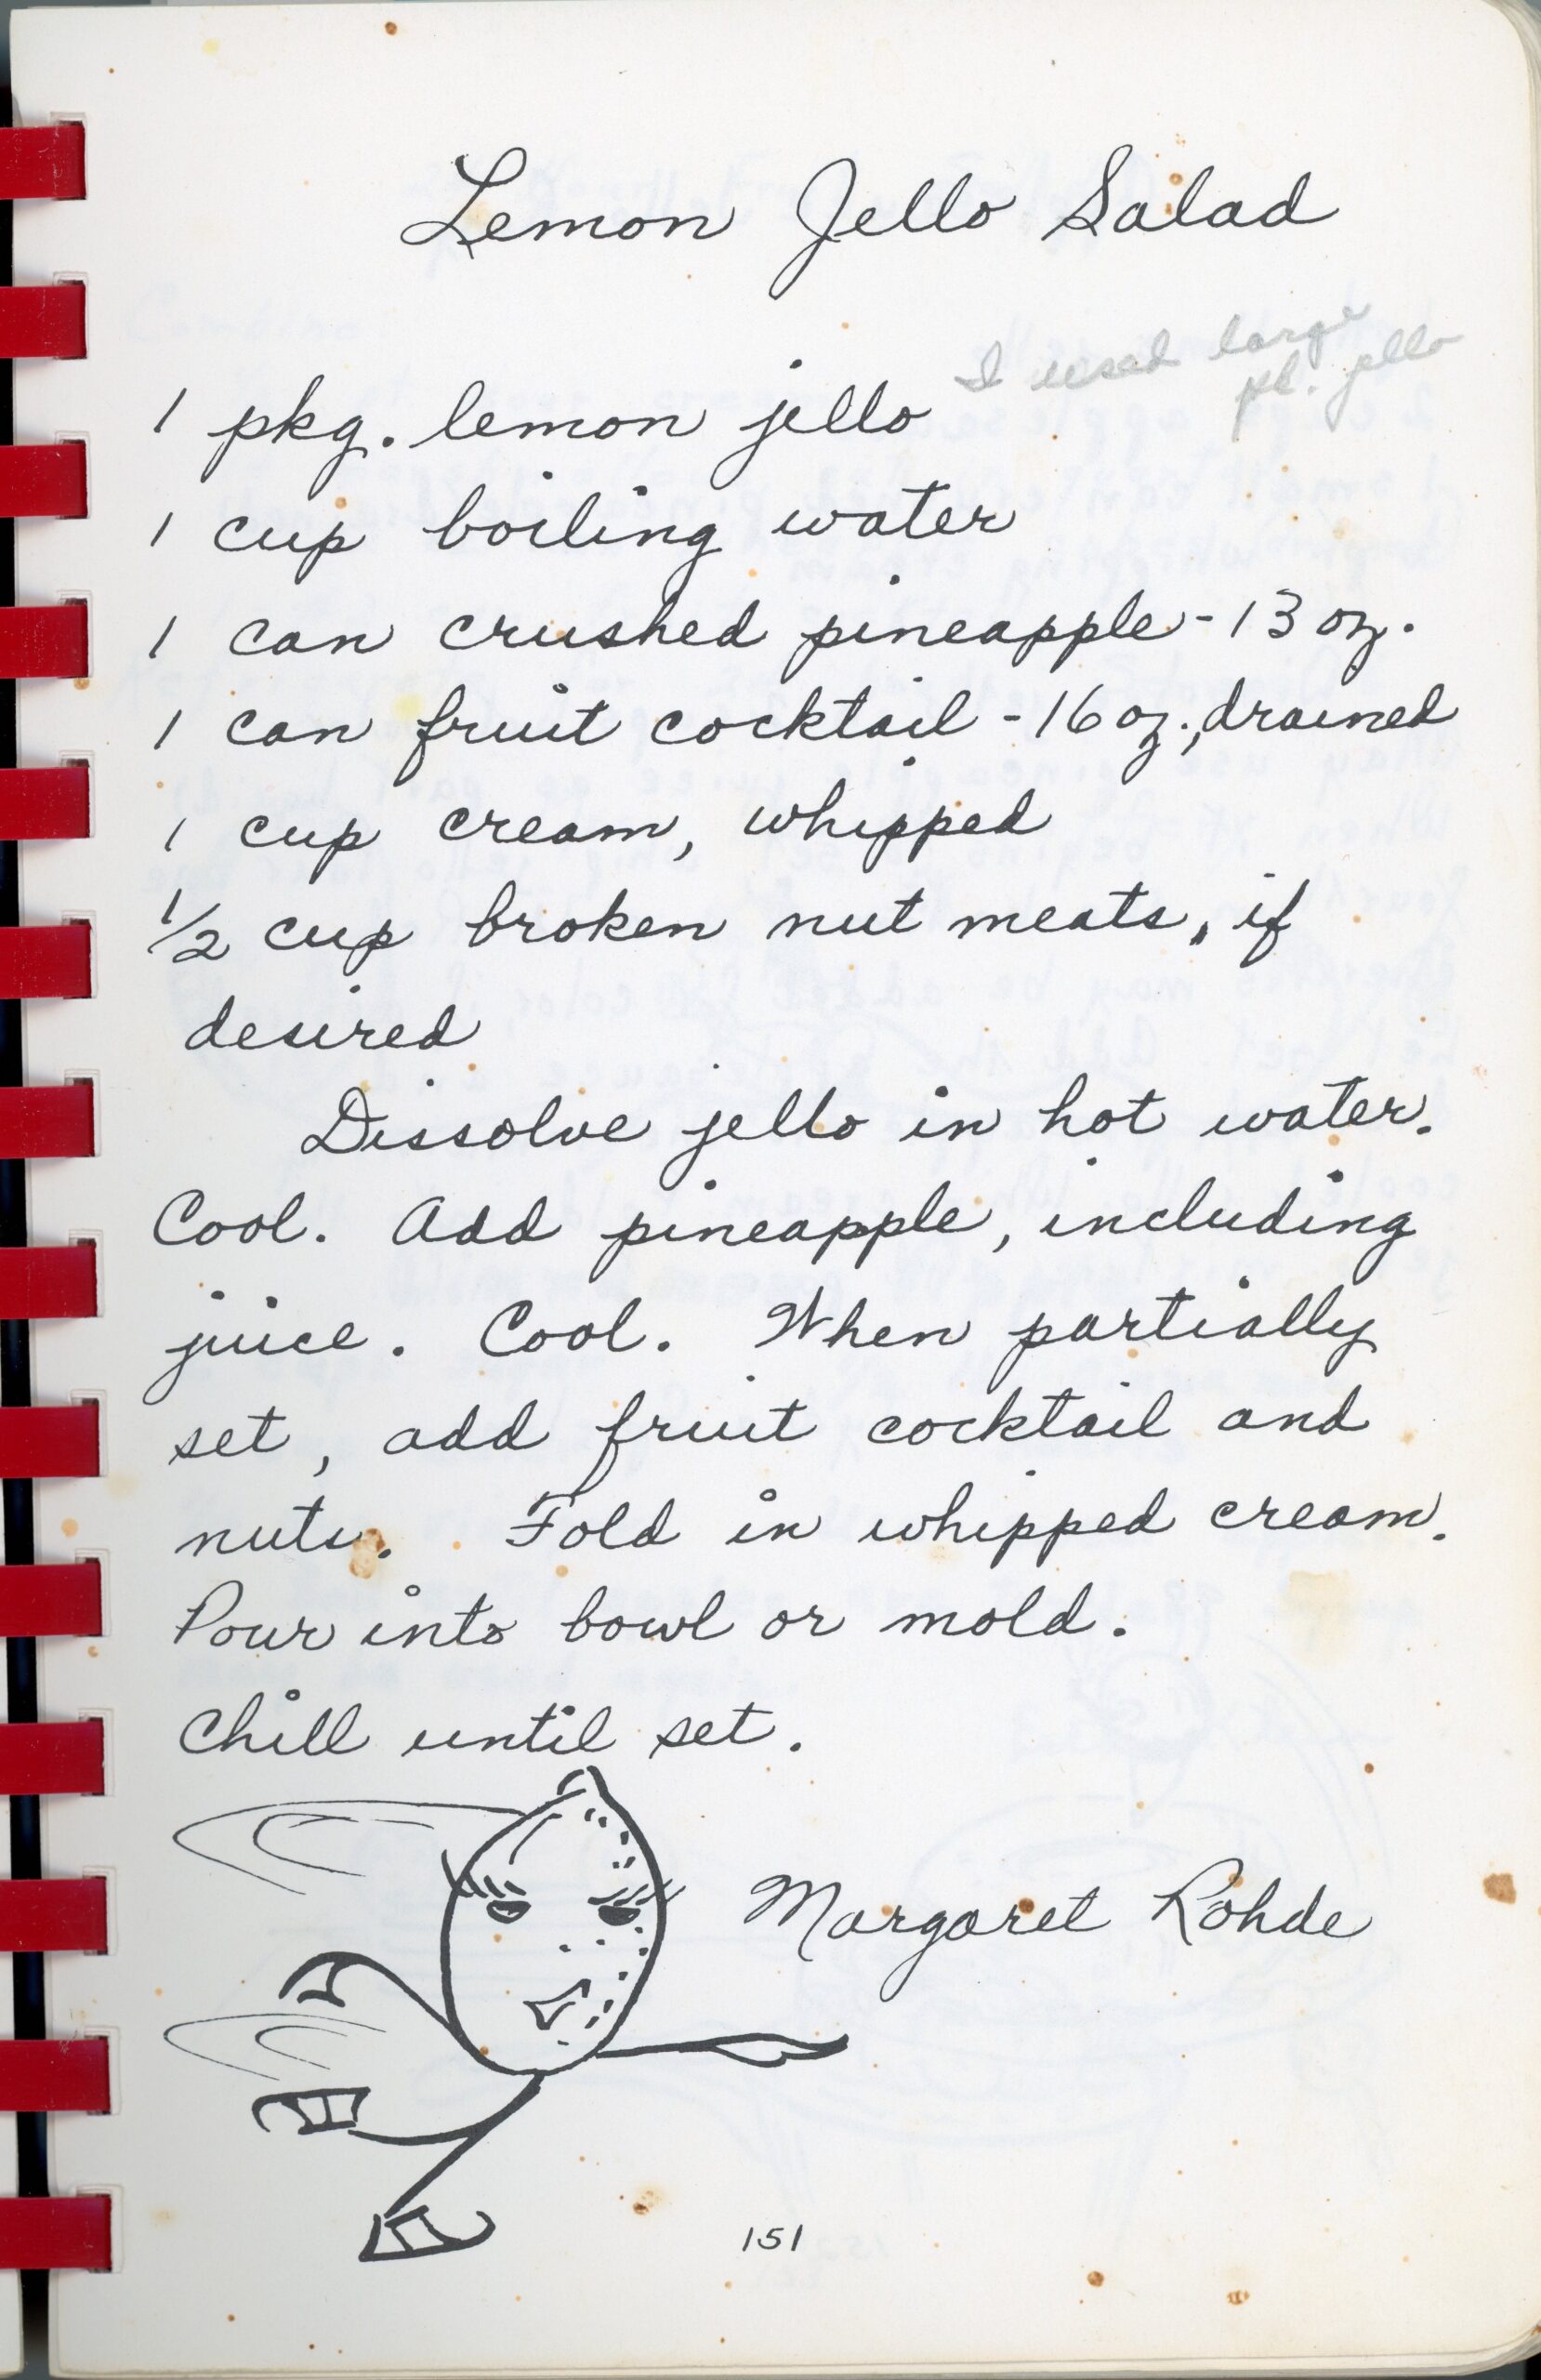 Lemon Jello Salad
I used large
pk. jello
1 pkg. lemon jello
1 cup boiling water
1 can crushed pineapple - 13 oz.
1 can fruit cocktail - 16 oz., drained
1 cup cream, whipped
1/2 cup broken nut meats, if
desired
Dissolve jello in hot water.
Cool. Add pineapple, including
juice. Cool. When partially
set, add fruit cocktail and
nuts. Fold in whipped cream.
Pour into bowl or mold.
Chill until set.
Margaret Rohde
151